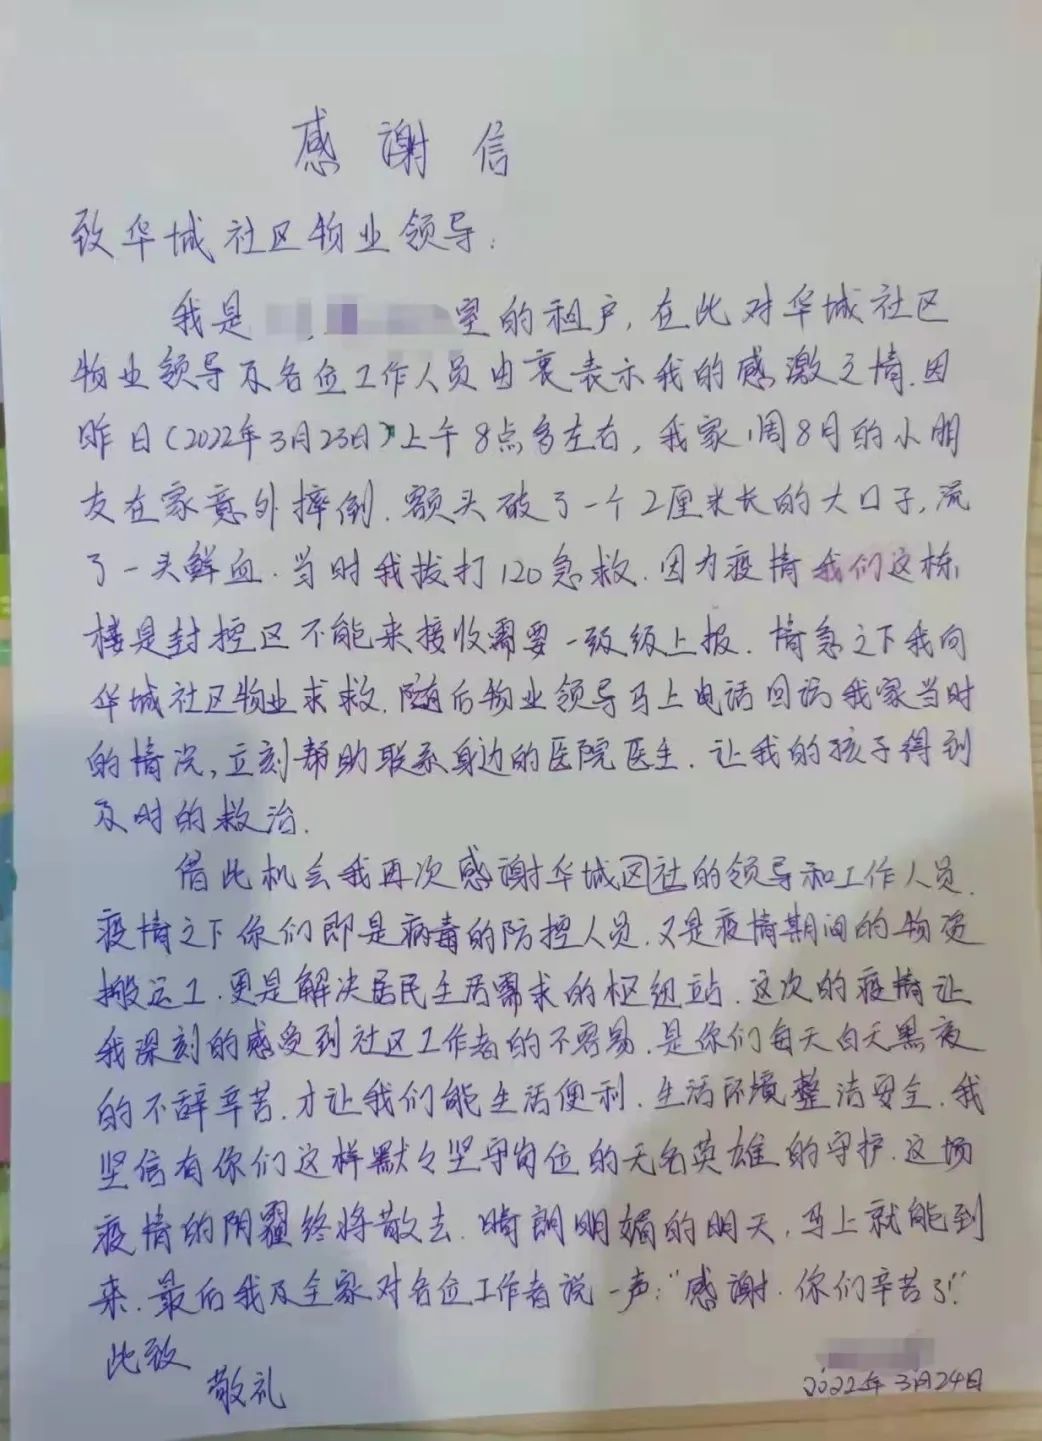 感谢信
致华城社区物业领导:
我是 室的租户,在此对华城社区
物业领导及各位工作人员由衷表示我的感激之情.因
昨日(2022年3月23日)上午8点多左右,我家1周8月的小朋
友在家意外摔倒.额头破了一个2厘米长的大口子,流
了一头鲜血.当时我拔打120急救.因为疫情我们这栋
楼是封控区不能来接收需要一级级上报.情急之下我向
华城社区物业求救.随后物业领导马上电话回访我家当时
的情况,立刻帮助联系身边的医院医生.让我的孩子得到
及时的救治.
借此机会我再次感谢华城区社的领导和工作人员.
疫情之下你们即是病毒的防控人员.又是疫情期间的物资
搬运工.更是解决居民生活需求的枢纽站.这次的疫情让
我深刻的感受到社区工作者的不容易.是你们每天白天黑夜
的不辞辛苦.才让我们能生活便利.生活环境整洁安全.我
坚信有你们这样默々坚守岗位的无名英雄的守护.这场
疫情的阴霾终将散去.晴朗明媚的明天,马上就能到
来.最后我及全家对各位工作者说一声:"感谢.你们辛苦了!"
此致
敬礼
2022年3月24日